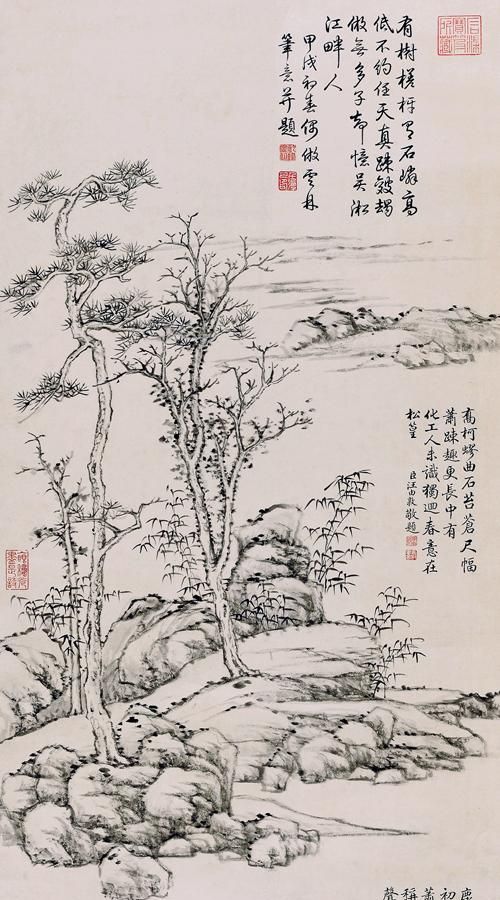 有樹槎枒有石嶙高
低不約任天真踈
倣無多子却憶吳淞
江畔人
甲戌初春偶倣雲林
筆意并題
喬柯蟉曲石苔蒼尺幅
蕭踈趣更長中有
化工人未識獨迴春意在
松篁 臣汪由敦敬題
初
蕭
稱
聲